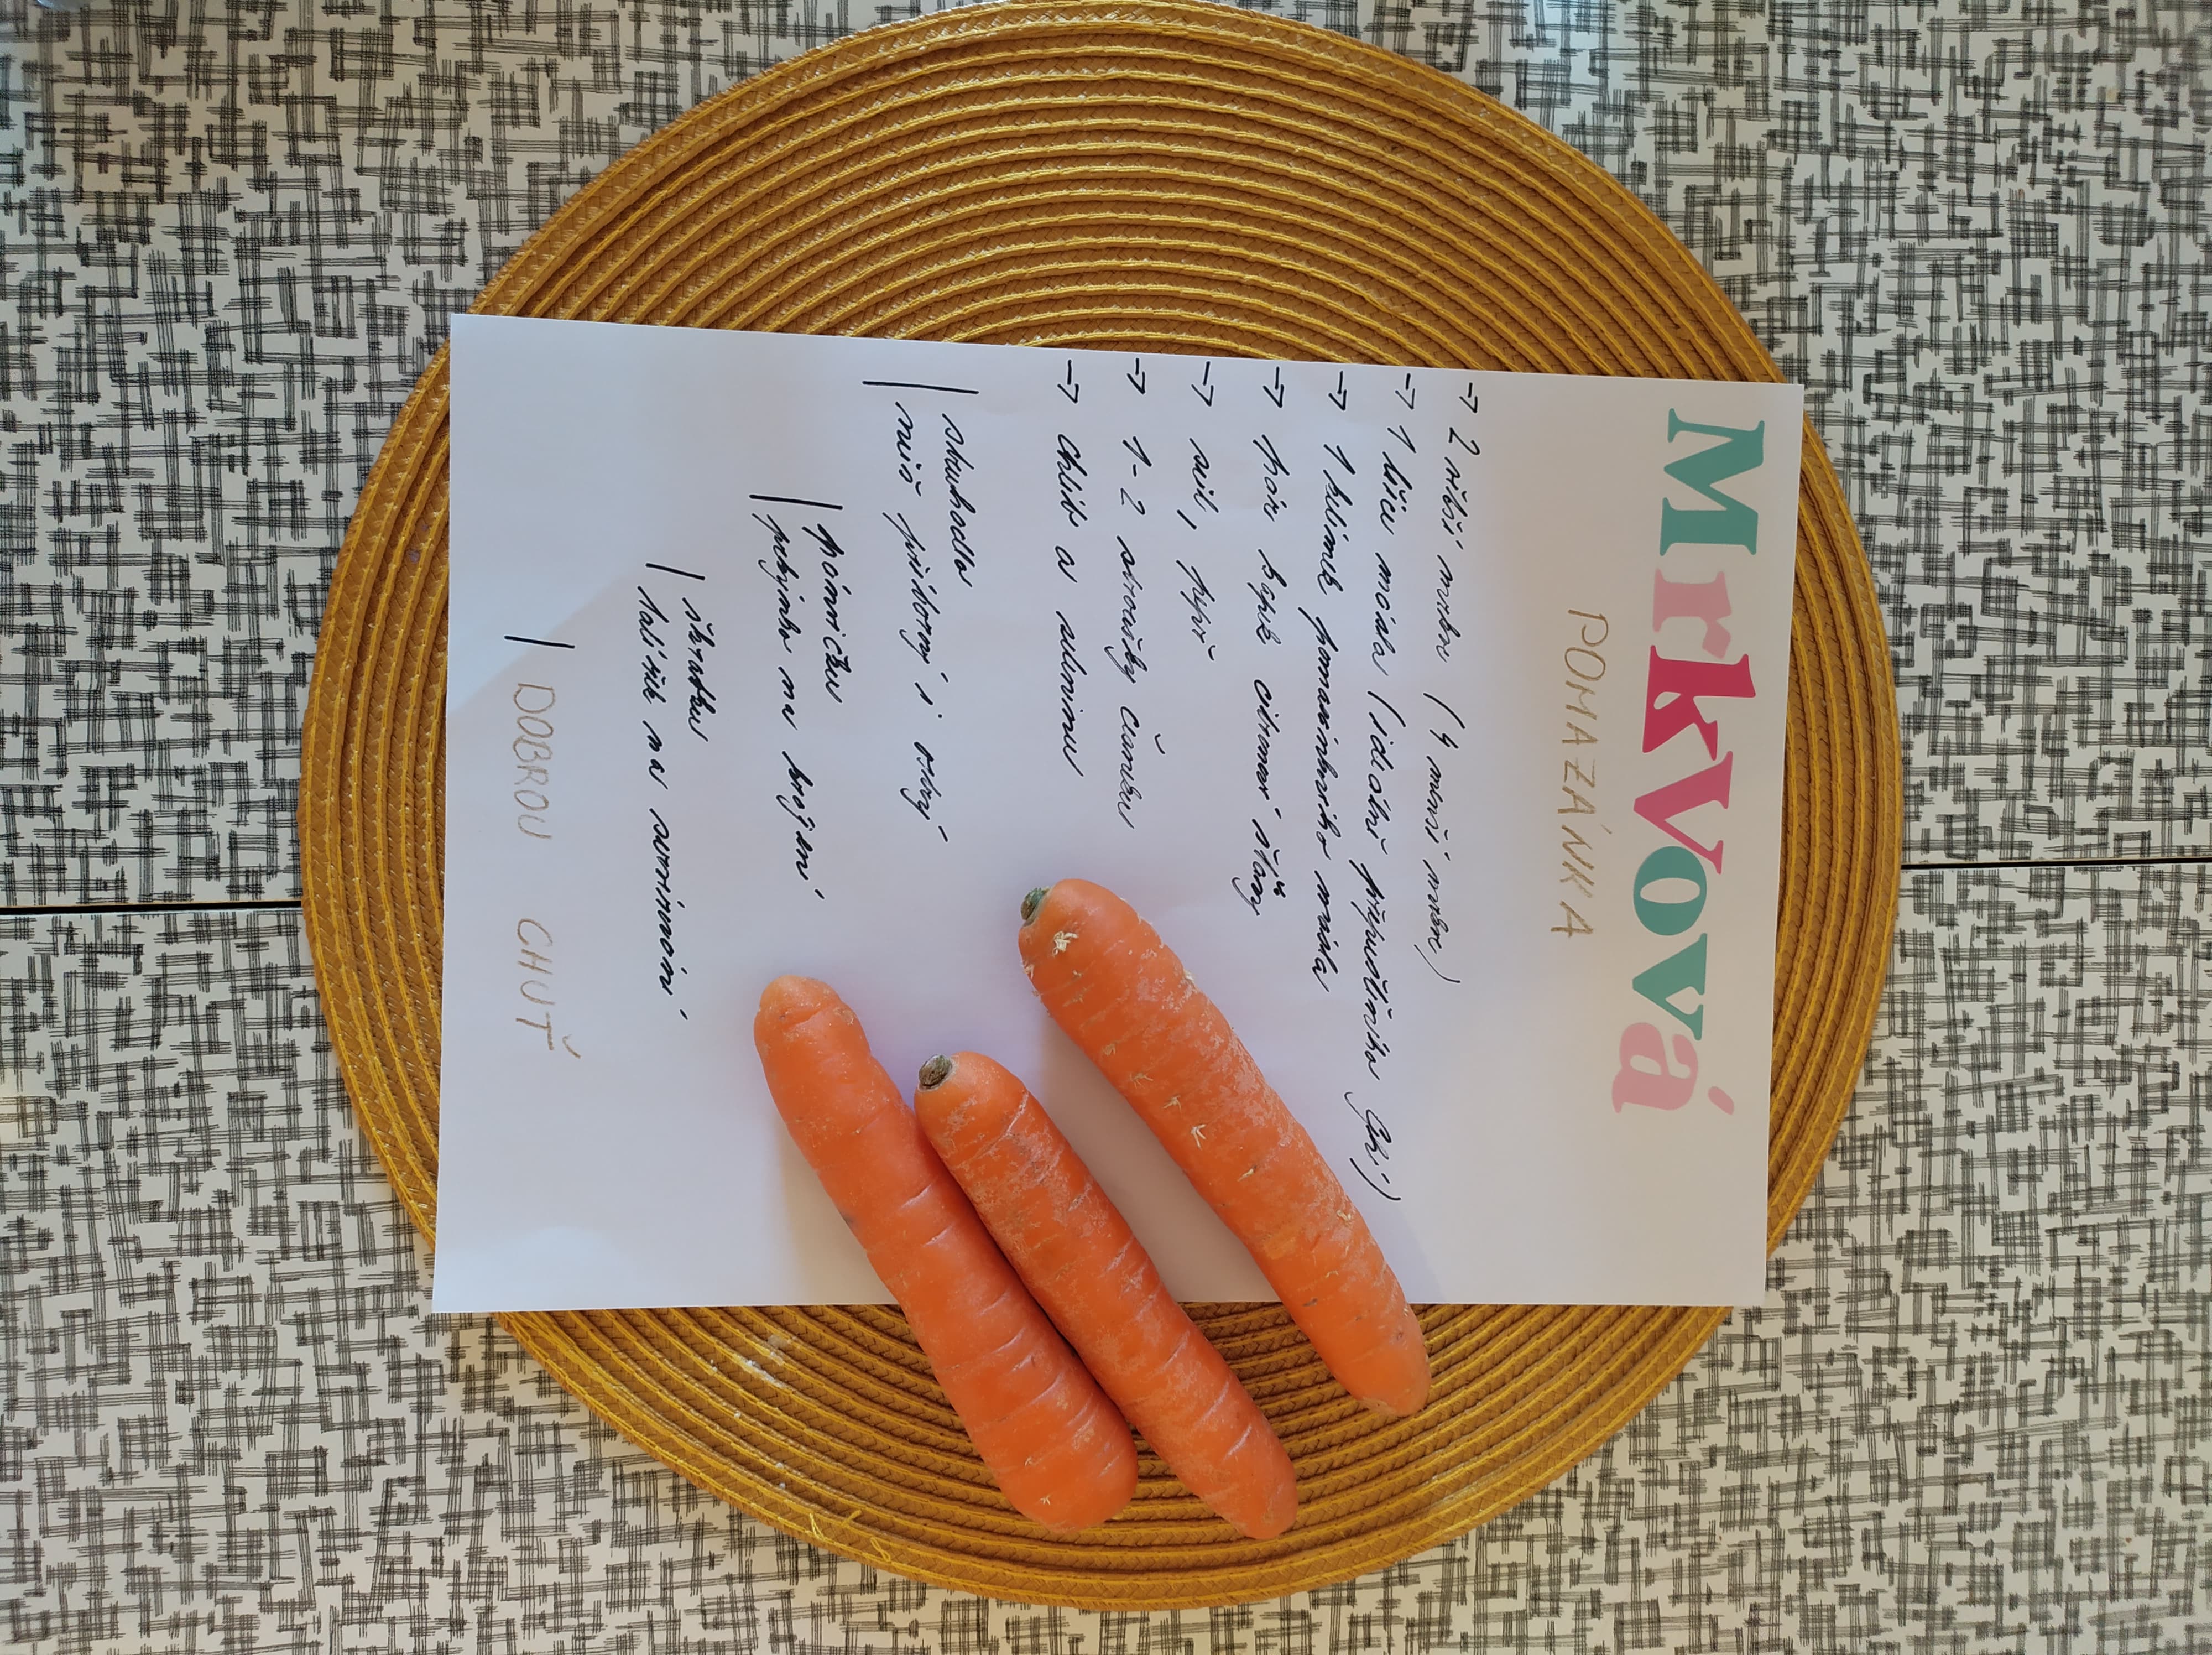 Mrkvová
POMAZÁNKA
→ 2 větší mrkve (4 menší mrkve)
→ 1 lžíce másla (ideálně přepuštěného ghí)
→ 1 kelímek pomazánkového másla
→ pár kapek citronové šťávy
→ sůl, pepř
→ 1-2 stroužky česneku
→ chléb a zeleninu
struhadlo
nůž příborový i ostrý
pánvičku
prkýnko na krájení
škrabku
talířek na servírování
DOBROU CHUŤ